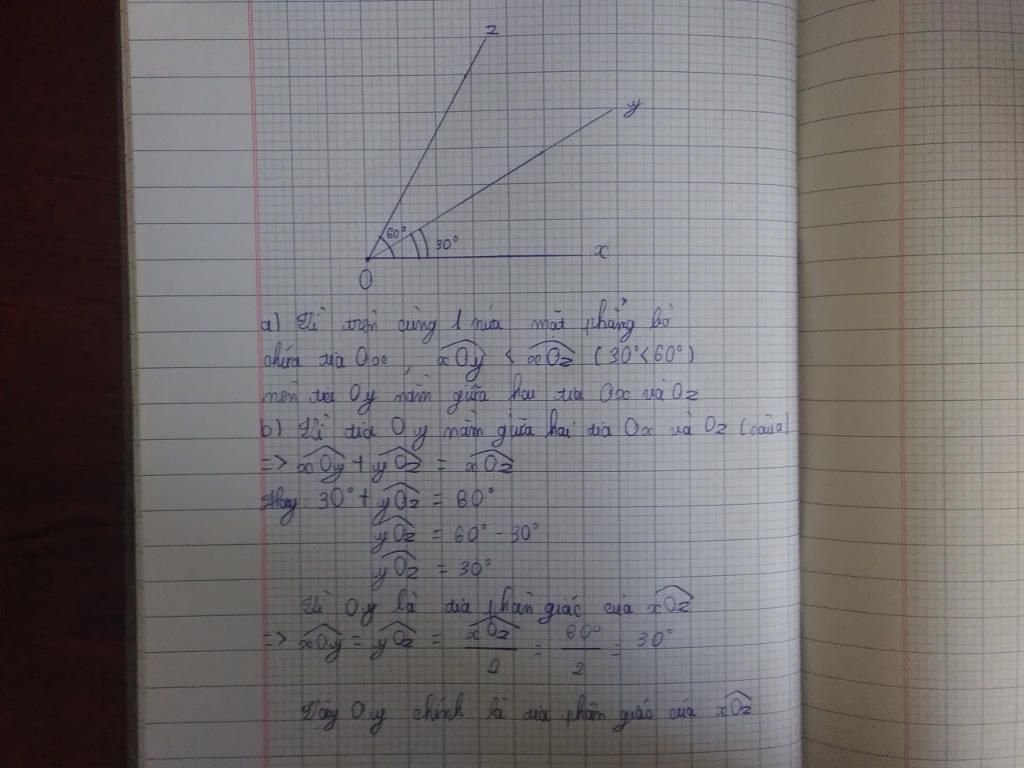 z
y
60°
30°
x
O
a) Vì trên cùng 1 nửa mặt phẳng bờ
chứa tia Ox, xOy < xOz (30° < 60°)
nên tia Oy nằm giữa hai tia Ox và Oz
b) Vì tia Oy nằm giữa hai tia Ox và Oz (câu a)
=> xOy + yOz = xOz
Hay 30° + yOz = 60°
yOz = 60° - 30°
yOz = 30°
Vì Oy là tia phân giác của xOz
=> xOy = yOz = xOz/2 = 60°/2 = 30°
Vậy Oy chính là tia phân giác của xOz